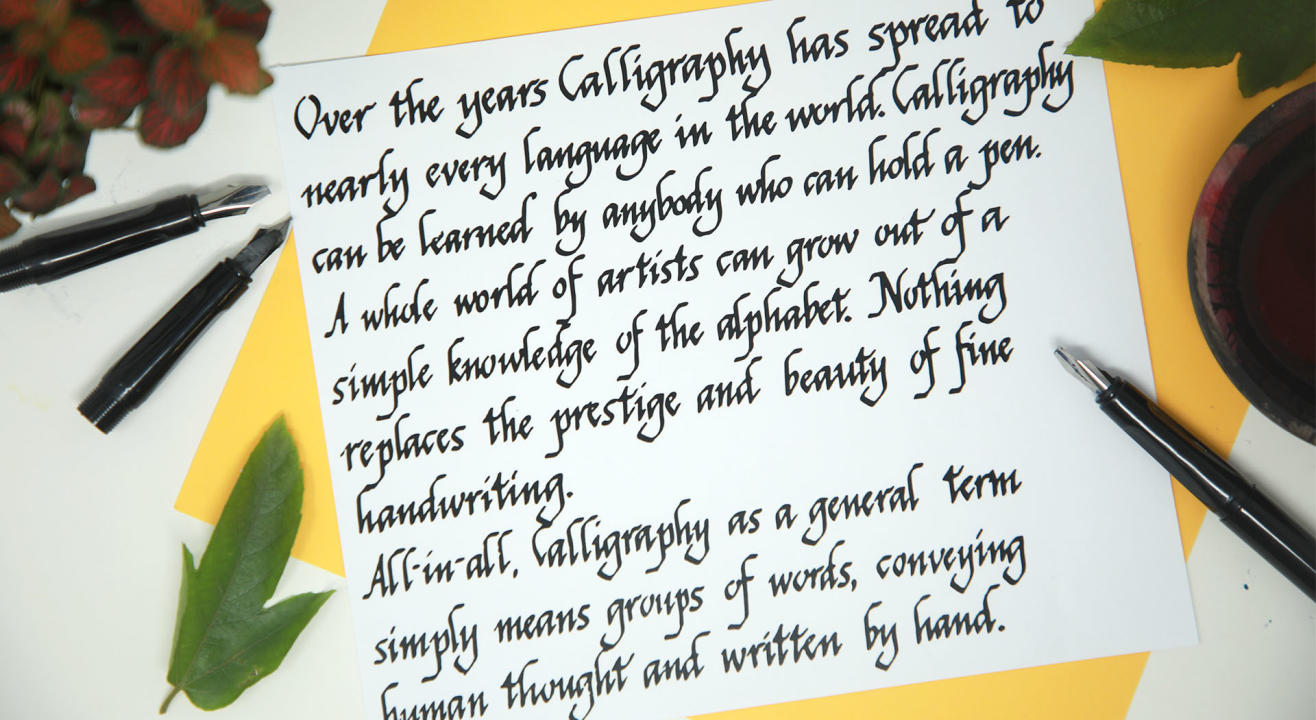 Over the years Calligraphy has spread to
nearly every language in the world. Calligraphy
can be learned by anybody who can hold a pen.
A whole world of artists can grow out of a
simple knowledge of the alphabet. Nothing
replaces the prestige and beauty of fine
handwriting.
All-in-all, Calligraphy as a general term
simply means groups of words, conveying
human thought and written by hand.